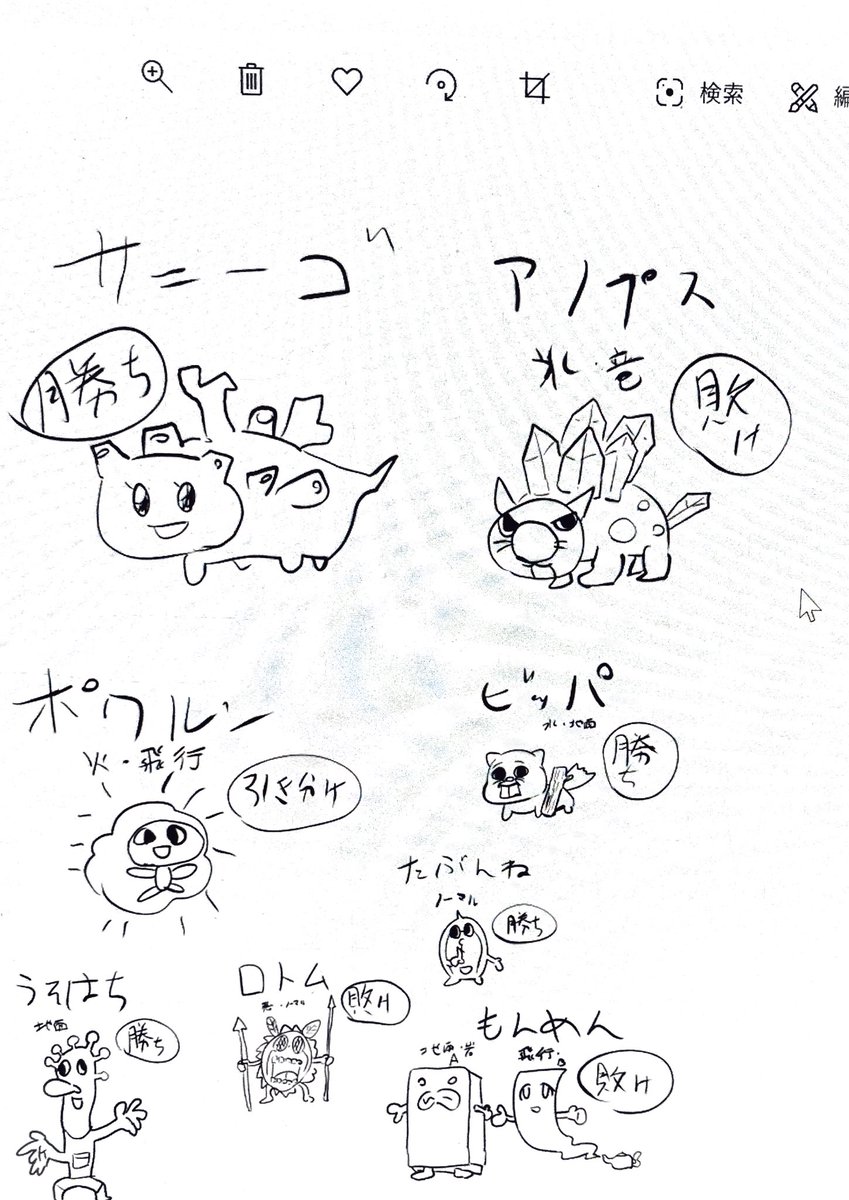 検索
編
サニーゴ
アノプス
勝ち
氷・竜
敗け
ポワルン
火・飛行
引き分け
ビッパ
水・地面
勝ち
たぶんね
ノーマル
勝ち
うそはち
地面
勝ち
ロトム
悪・ノーマル
敗け
もんめん
地面・岩
A
飛行・
B
敗け